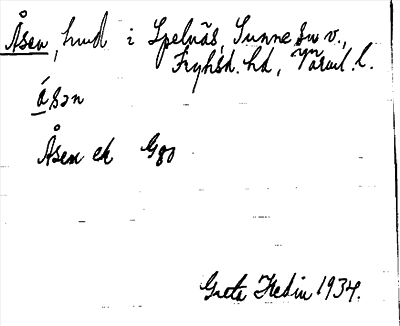 Åsen, hmd i Spelnäs, Sunne sn v.,
Fryksd. hd, Värml. l.
ǻsən
Åsen ek G80
Greta Hedin 1934.